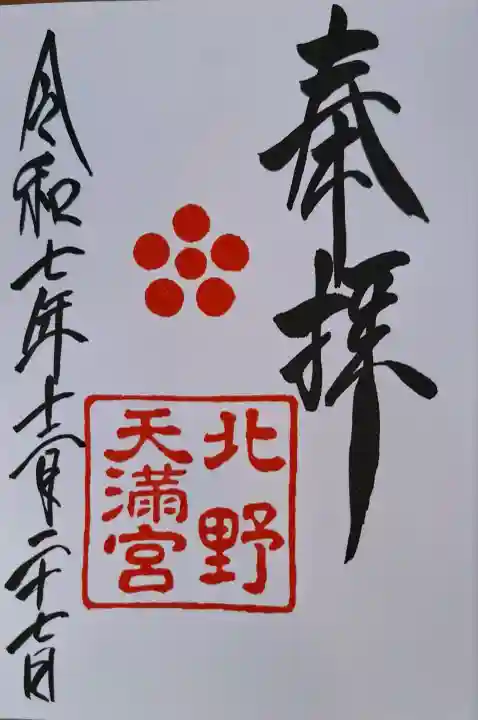 奉拝
北野
天満宮
令和七年十二月二十七日